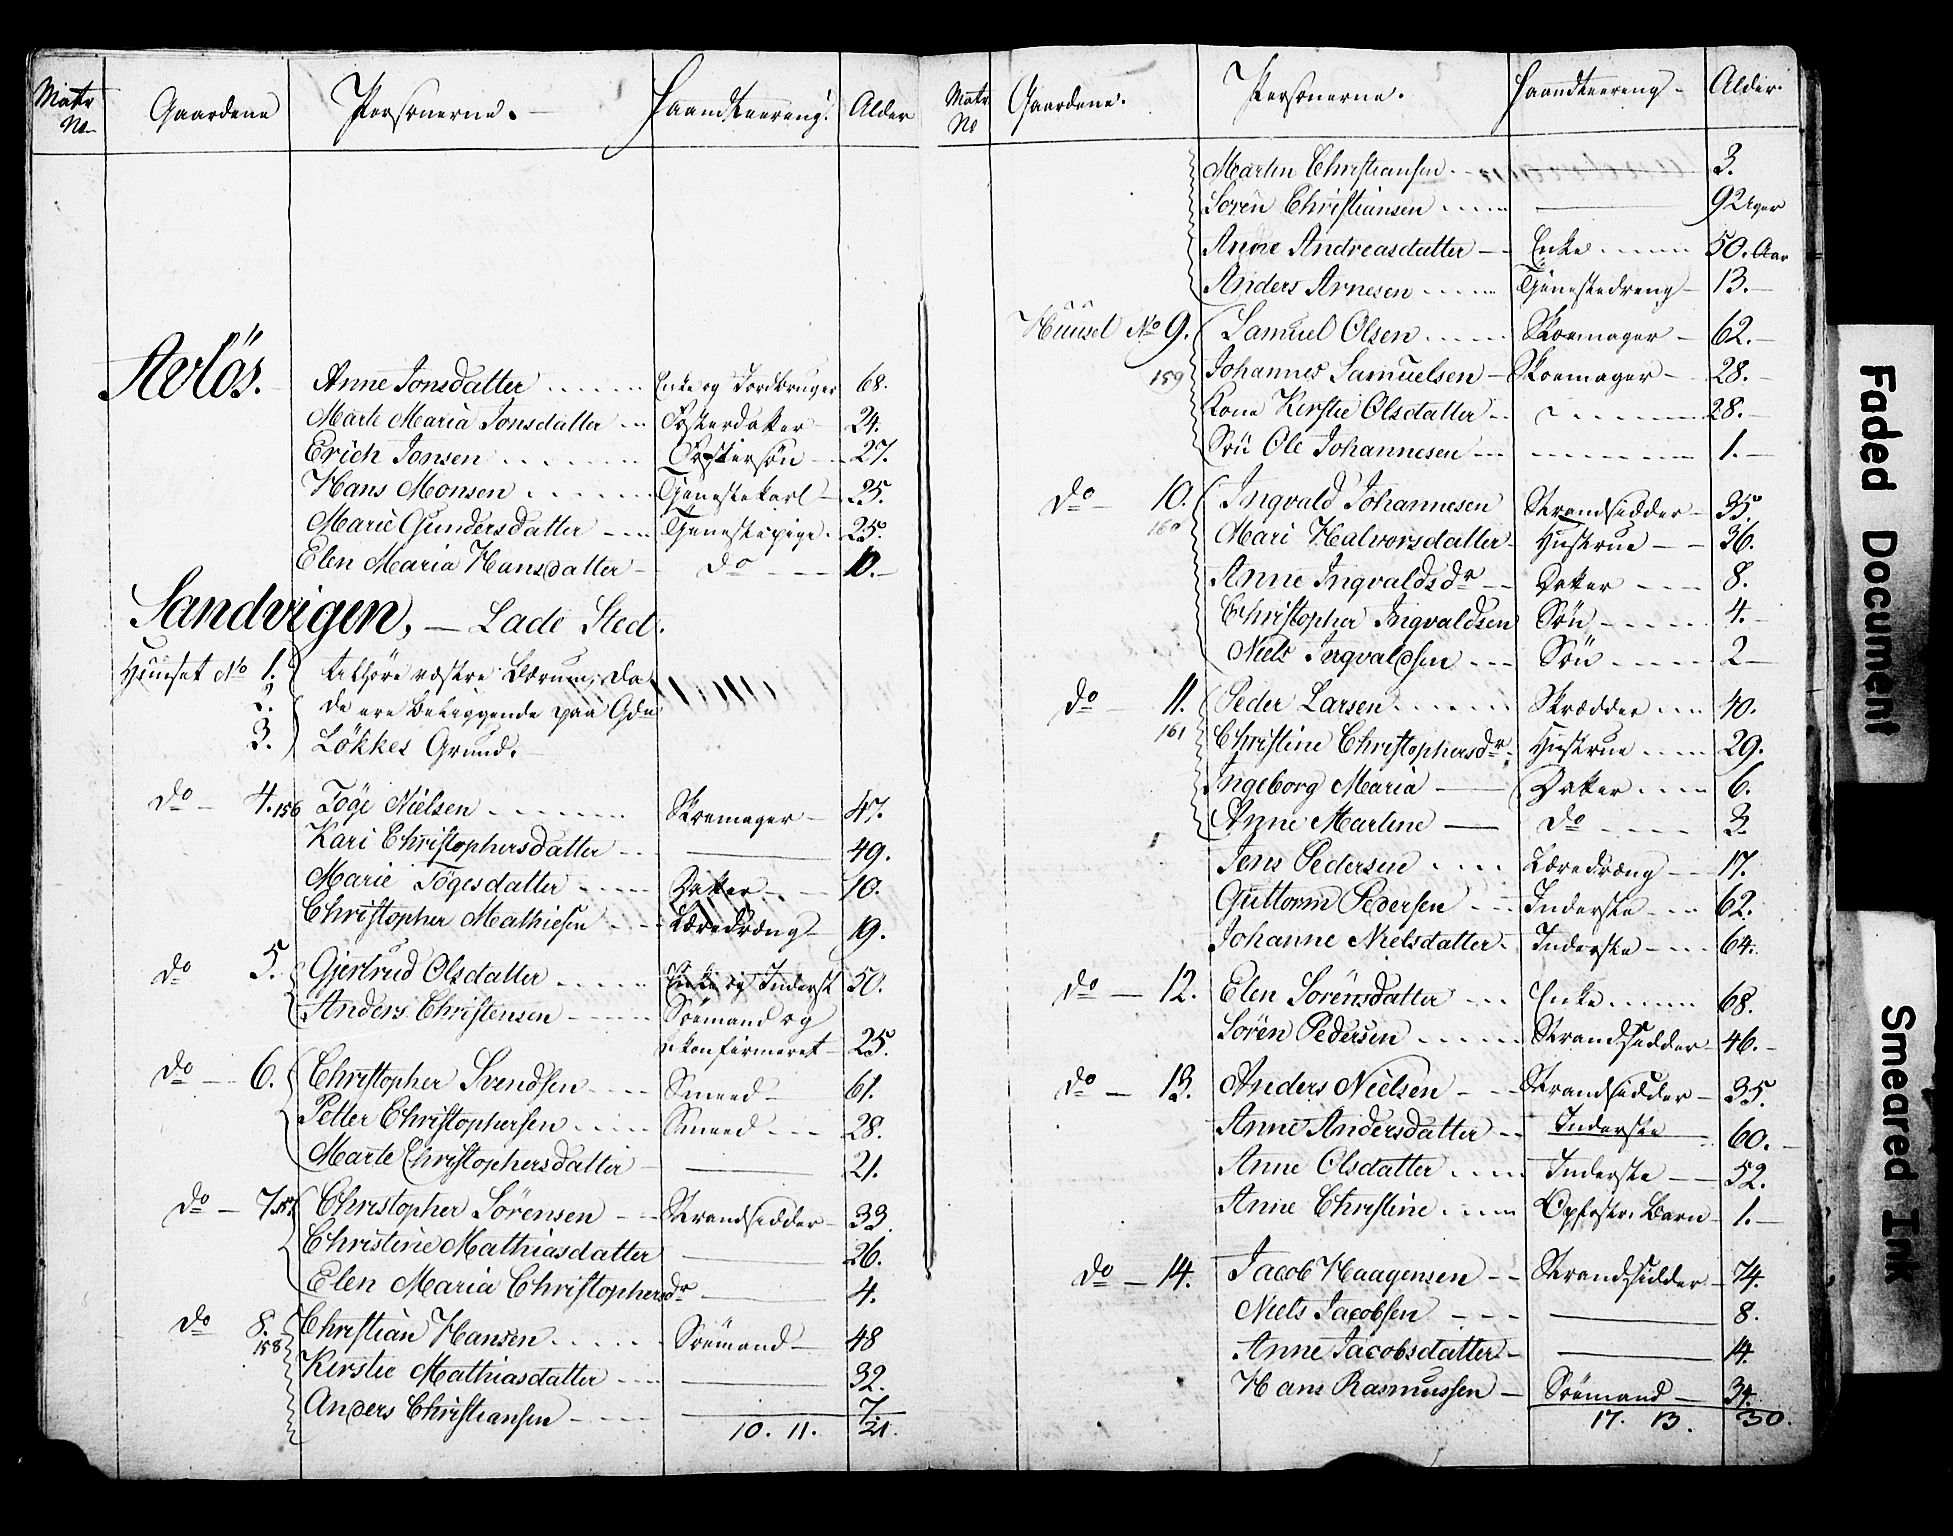 Matr No Gaardene Personerne. Haandteering. Alder
Avløs. Anne Jonsdatter Enke og Jordbruger 68.
Marte Maria Jonsdatter Fosterdatter 24.
Erich Jonsen Fostersøn 27.
Hans Monsen Tjenestekarl 25.
Marie Gundersdatter Tjenestepige 25.
Elen Maria Hansdatter do 10.
Sandvigen, – Lade Sted.
Huuset No 1. tilhøre vestre Bærum, da
2. de ere beliggende paa Gdn
3. Løkkes Grund.
do 4. 156 Toge Nielsen Skomager 47.
Kari Christophersdatter 49.
Marie Togesdatter Datter 10.
Christopher Mathiesen Læredræng 19.
do 5. Gjertrud Olsdatter Enke og Inderst 50.
Anders Christensen Søemand og
ukonfirmeret 25.
do 6. Christopher Svendsen Smeed 61.
Petter Christophersen Smeed 28.
Marte Christophersdatter 21.
do 7. 157 Christopher Sørensen Strandsidder 33.
Christine Mathiasdatter 26.
Elen Maria Christophersdr 4.
do 8. 158 Christian Hansen Søemand 48
Kerstie Mathiasdatter 32.
Anders Christiansen 7.
10. 11. 21.
Matr No Gaardene. Personerne. Haandteering Alder.
Martin Christiansen 3.
Søren Christiansen 92 Uger
Anne Andreasdatter Enke 50. Aar
Anders Arnesen Tjenestedreng 13.
Huusel No 9. Samuel Olsen Skoemager 62.
159 Johannes Samuelsen Skoemager 28.
Kone Kerstie Olsdatter 28.
Søn Ole Johannesen 1.
do 10. Ingvald Johannesen Strandsidder 35.
160 Mari Halvorsdatter Hustrue 36.
Anne Ingvaldsdr Datter 8.
Christopher Ingvaldsen Søn 4.
Niels Ingvaldsen Søn 2
do 11. Peder Larsen Skrædder 40.
161 Christine Christophersdr Hustrue 29.
Ingeborg Maria Datter 6.
Anne Martine do 3.
Jens Pedersen Læredræng 17.
Guttorm Pedersen Inderste 62.
Johanne Nielsdatter Inderste 64.
do 12. Elen Sørensdatter Enke 68.
Søren Pedersen Strandsidder 46.
do 13. Anders Nielsen Strandsidder 35.
Anne Andersdatter Inderste 60.
Anne Olsdatter Inderste 52.
Anne Christine Opfostr. Barn 1.
do 14. Jacob Haagensen Strandsidder 74.
Niels Jacobsen 8.
Anne Jacobsdatter 14.
Hans Rasmussen Søemand 34.
17. 13. 30.
Faded Document
Smeared Ink